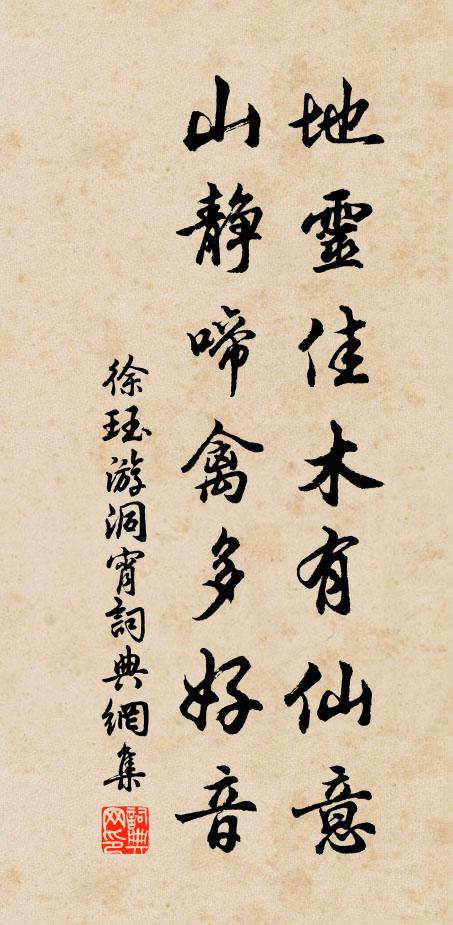 地靈佳木有仙意
山靜啼禽多好音
徐珏游洞宵詞典網集
詞典网印